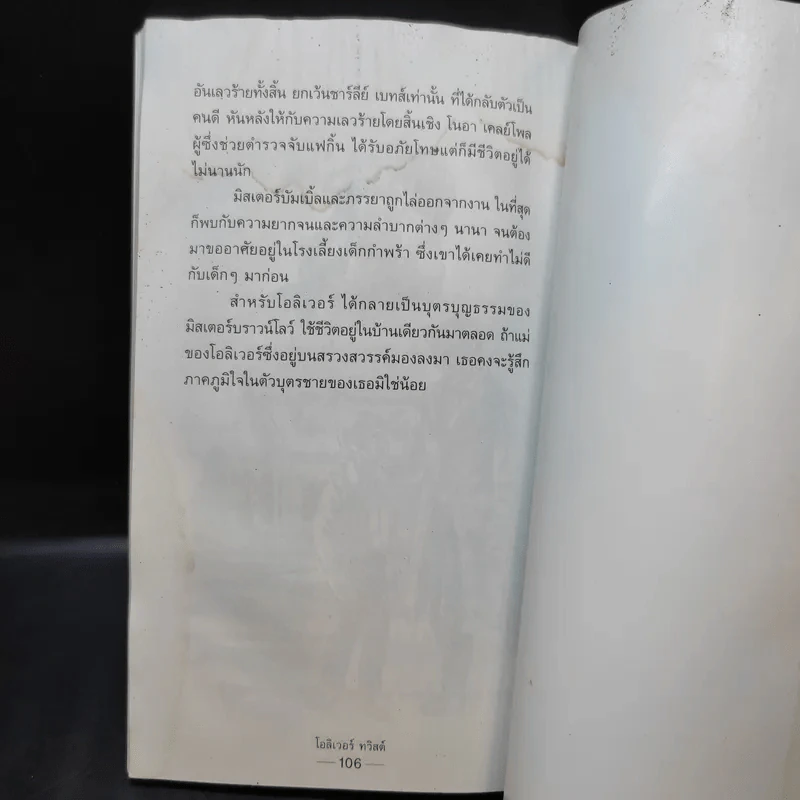 อันเลวร้ายทั้งสิ้น ยกเว้นชาร์ลีย์ เบทส์เท่านั้น ที่ได้กลับตัวเป็น
คนดี หันหลังให้กับความเลวร้ายโดยสิ้นเชิง โนอา เคลย์โพล
ผู้ซึ่งช่วยตำรวจจับแฟกิ้น ได้รับอภัยโทษแต่ก็มีชีวิตอยู่ได้
ไม่นานนัก
มิสเตอร์บัมเบิ้ลและภรรยาถูกไล่ออกจากงาน ในที่สุด
ก็พบกับความยากจนและความลำบากต่างๆ นานา จนต้อง
มาขออาศัยอยู่ในโรงเลี้ยงเด็กกำพร้า ซึ่งเขาได้เคยทำไม่ดี
กับเด็กๆ มาก่อน
สำหรับโอลิเวอร์ ได้กลายเป็นบุตรบุญธรรมของ
มิสเตอร์บราวน์โลว์ ใช้ชีวิตอยู่ในบ้านเดียวกันมาตลอด ถ้าแม่
ของโอลิเวอร์ซึ่งอยู่บนสรวงสวรรค์มองลงมา เธอคงจะรู้สึก
ภาคภูมิใจในตัวบุตรชายของเธอมิใช่น้อย
โอลิเวอร์ ทวิสต์
— 106 —